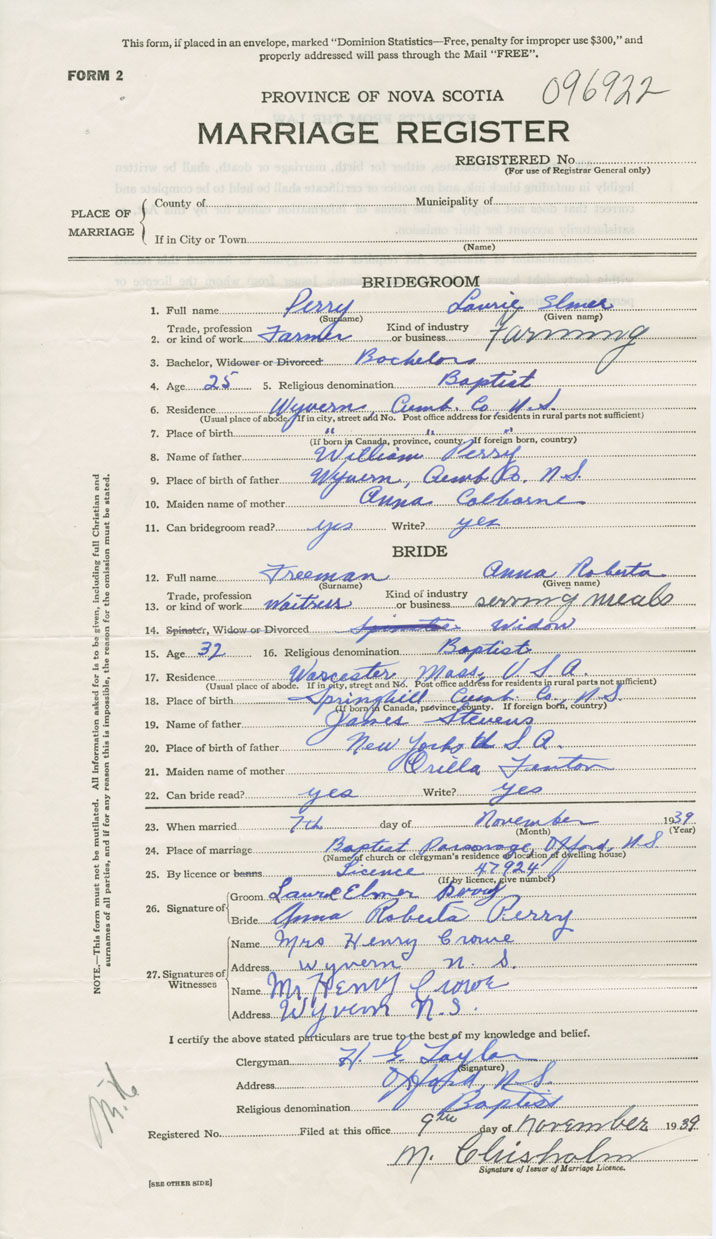 This form, if placed in an envelope, marked "Dominion Statistics—Free, penalty for improper use $300," and
properly addressed will pass through the Mail "FREE".
FORM 2
096922
PROVINCE OF NOVA SCOTIA
MARRIAGE REGISTER
REGISTERED No.
(For use of Registrar General only)
PLACE OF MARRIAGE
County of Municipality of
If in City or Town
(Name)
BRIDEGROOM
1. Full name Perry Laurie Elmer
(Surname) (Given name)
2. Trade, profession or kind of work Farmer Kind of industry or business Farming
3. Bachelor, Widower or Divorced Bachelor
4. Age 25 5. Religious denomination Baptist
6. Residence Wyvern, Cumb. Co. N.S.
(Usual place of abode. If in city, street and No. Post office address for residents in rural parts not sufficient)
7. Place of birth " " "
(If born in Canada, province, county. If foreign born, country)
8. Name of father William Perry
9. Place of birth of father Wyvern, Cumb. Co. N.S.
10. Maiden name of mother Anna Colborne
11. Can bridegroom read? yes Write? yes
BRIDE
12. Full name Freeman Anna Roberta
(Surname) (Given name)
13. Trade, profession or kind of work Waitress Kind of industry or business serving meals
14. Spinster, Widow or Divorced Spinster Widow
15. Age 32 16. Religious denomination Baptist
17. Residence Worcester, Mass, U.S.A.
(Usual place of abode. If in city, street and No. Post office address for residents in rural parts not sufficient)
18. Place of birth Springhill Cumb. Co. N.S.
(If born in Canada, province, county. If foreign born, country)
19. Name of father James Stevens
20. Place of birth of father New York, U.S.A.
21. Maiden name of mother Orilla Fenton
22. Can bride read? yes Write? yes
23. When married 7th day of November 1939
(Month) (Year)
24. Place of marriage Baptist Parsonage, Oxford, N.S
(Name of church or clergyman's residence or location of dwelling house)
25. By licence or banns Licence 47924
(If by licence, give number)
26. Signature of Groom Laurie Elmer Perry
Bride Anna Roberta Perry
27. Signatures of Witnesses
Name Mrs Henry Crowe
Address Wyvern N. S.
Name Mr Henry Crowe
Address Wyvern N.S.
I certify the above stated particulars are true to the best of my knowledge and belief.
Clergyman H. G. Taylor
(Signature)
Address Oxford, N.S.
Religious denomination Baptist
Registered No. Filed at this office 9th day of November 1939
M. Chisholm
Signature of Issuer of Marriage Licence.
[SEE OTHER SIDE]
NOTE.—This form must not be mutilated. All information asked for is to be given, including full Christian and
surnames of all parties, and if for any reason this is impossible, the reason for the omission must be stated.